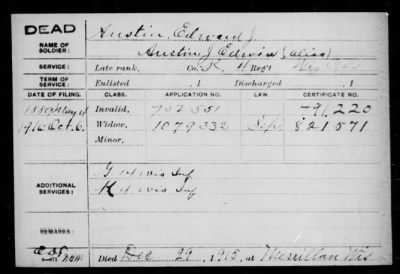 DEAD
Austin Edward J.
NAME OF SOLDIER:
Austin J Edwin (alias)
SERVICE:
Late rank, Co. K, 4 Reg't Wis Cav
TERM OF SERVICE:
Enlisted , 1 Discharged , 1
DATE OF FILING. CLASS. APPLICATION NO. CERTIFICATE NO.
Invalid, 702 551 491,220
1916 Oct. 6. Widow, 1079332 821571
Minor,
ADDITIONAL SERVICES:
G 14 Wis Inf
K 4 Wis Inf
Died Dec 29, 1915, at Merrillan Wis